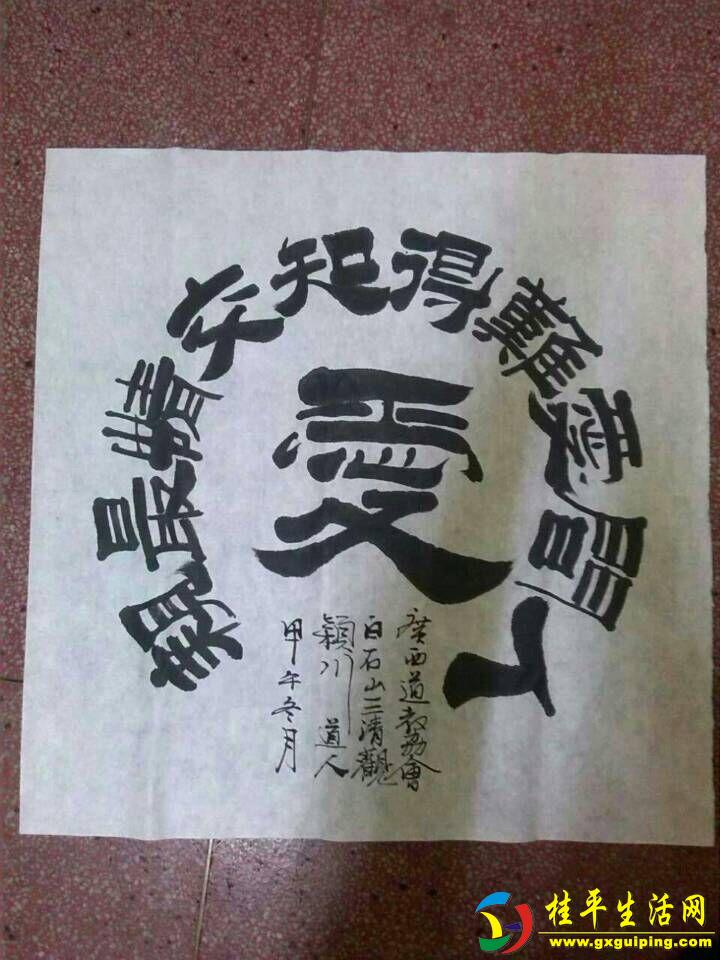 人間愛難得知交情最親
愛
廣西道教協會
白石山三清觀
穎川道人
甲午冬月
桂平生活网
www.gxguiping.com